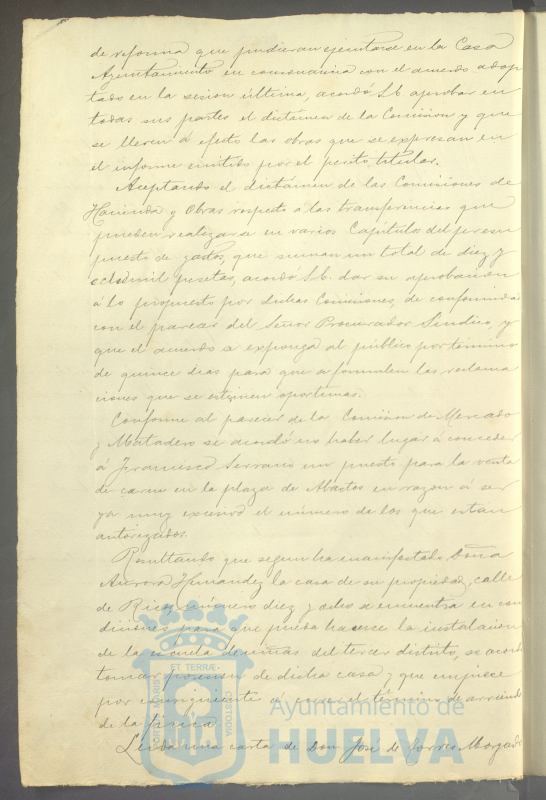 de reforma que pudieran ejecutarse en la Casa
Ayuntamiento en consonancia con el acuerdo adop
tado en la sesion última, acordó S.E. aprobar en
todas sus partes el dictámen de la Comision y que
se lleven á efecto las obras que se expresan en
el informe emitido por el perito titular.
Aceptando el dictámen de las Comisiones de
Hacienda y Obras respecto á las transferencias que
pueden realizarse en varios Capítulos del presu
puesto de gastos, que suman un total de diez y
ocho mil pesetas, acordó S.E. dar su aprobacion
á lo propuesto por dichas Comisiones, de conformidad
con el parecer del Señor Procurador Síndico, y
que el acuerdo se exponga al público por término
de quince dias para que se formulen las reclama
ciones que se estimen oportunas.
Conforme al parecer de la Comision de Mercado
y Matadero se acordó no haber lugar á conceder
á Francisco Serrano un puesto para la venta
de carne en la plaza de Abastos en razon á ser
ya muy excesivo el número de los que estan
autorizados.
Resultando que segun ha manifestado Doña
Aurora Hernandez la casa de su propiedad, calle
de Rico, número diez y ocho se encuentra en con
diciones para que pueda hacerse la instalacion
de la escuela de niñas del tercer distrito, se acordó
tomar posesion de dicha casa y que empiece
por consiguiente á correr el término de arriendo
de la finca.
Leida una carta de Don José de Torres Morgado
PORTUS MARIS ET TERRAE CUSTODIA
Ayuntamiento de
HUELVA